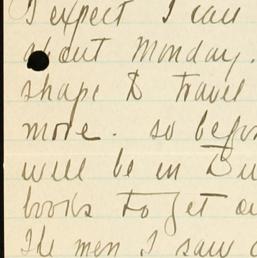 I expect I can
about Monday.
shape to travel
more. so befor
will be in Bu
books to get o
The men I saw